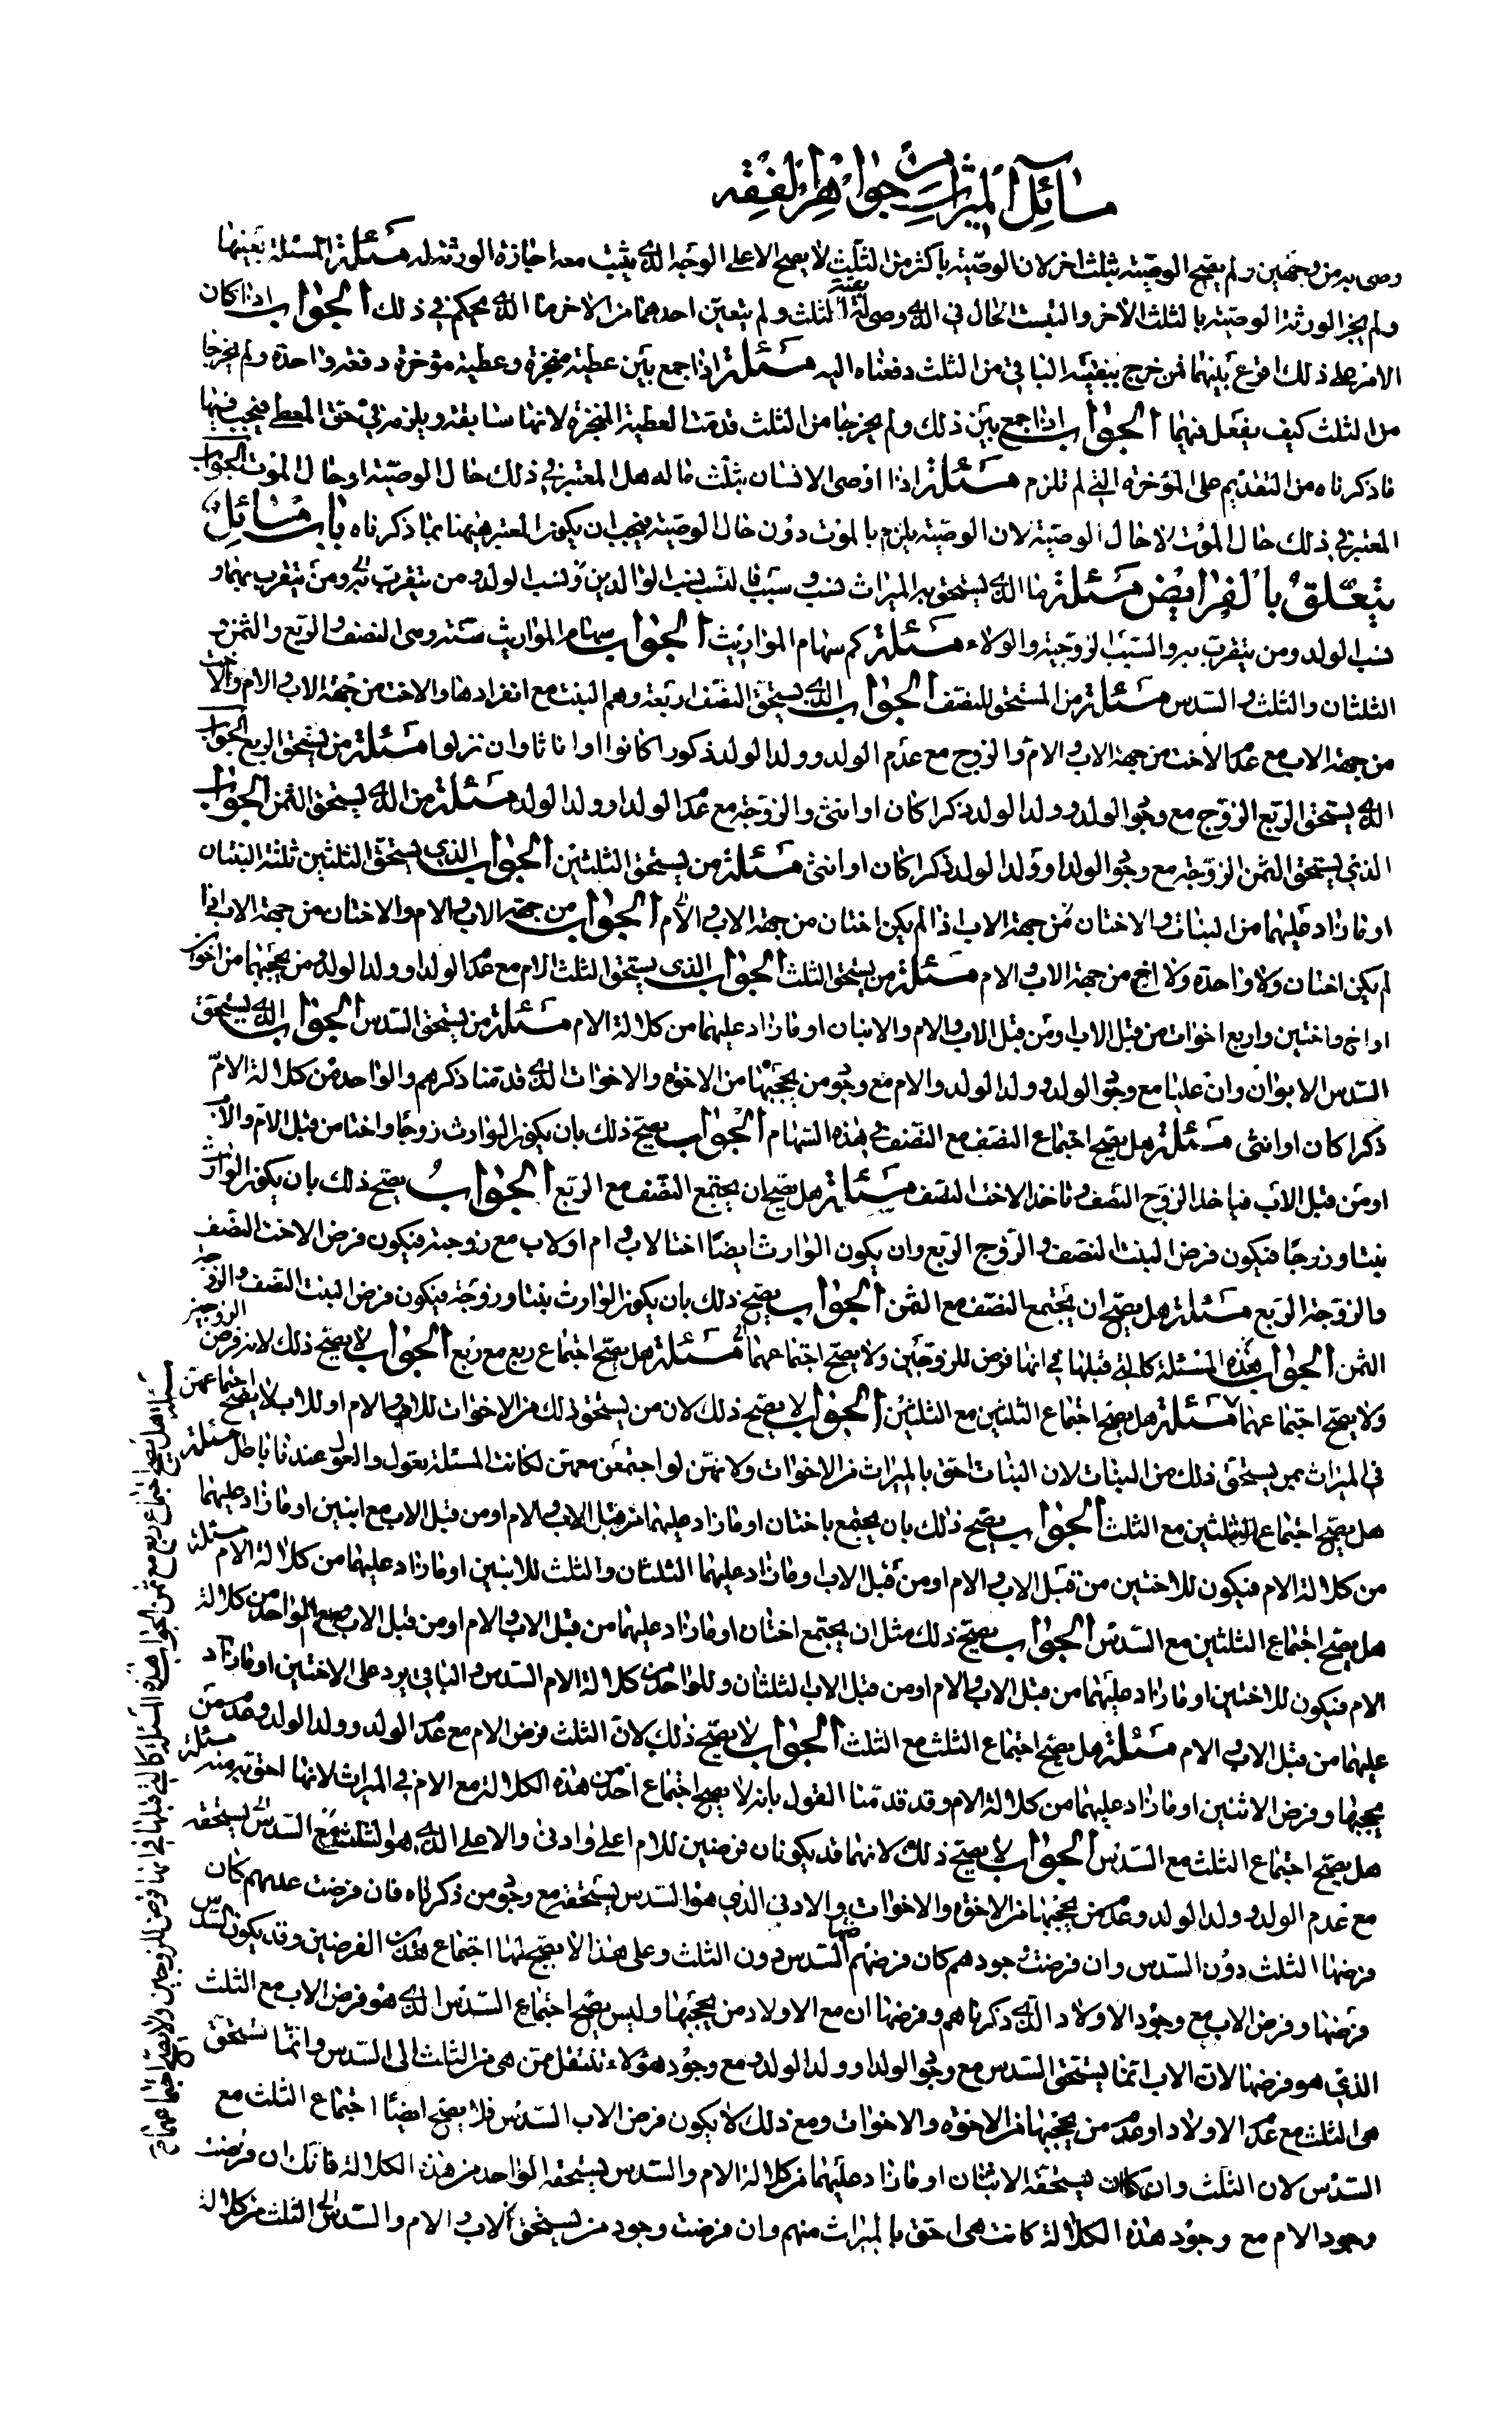 مسائل الميراث جواهر الفقه
وصى به من وجهين ولم يصح الوصية بثلث اخر لان الوصية باكثر من الثلث لا يصح الا على الوجه الذي يثبت معه اجازة الورثة له مسئلة المسئلة بعينها
ولم يجز الورثة الوصية بالثلث الاخر والتبست الحال في الذي وصى له بالثلث ولم يتعين احدهما من الاخر ما الذي يحكم في ذلك الجواب اذا كان
الامر على ذلك اقرع بينهما فمن خرج بنفيته الباقي من الثلث دفعناه اليه مسئلة اذا جمع بين عطية منجزة وعطية مؤخرة دفعة واحدة ولم يخرجا
من الثلث كيف يفعل فيهما الجواب اذا جمع بين ذلك ولم يخرجا من الثلث قدمت العطية المنجزة لانها سابقة ويلزمه في حق المعطي فيجب فيها
ما ذكرناه من التقديم على المؤخرة التي لم تلزم مسئلة اذا اوصى الانسان بثلث ماله هل المعتبر في ذلك حال الوصية او حال الموت الجواب
المعتبر في ذلك حال الموت لا حال الوصية لان الوصية يلزم بالموت دون حال الوصية فيجب ان يكون المعتبر فيهما بما ذكرناه باب مسائل
يتعلق بالفرايض مسئلة ما الذي يستحق به الميراث نسب وسبب فالنسب نسب الوالدين ونسب الولد ومن يتقرب به ومن يتقرب بهما و
نسب الولد ومن يتقرب به والسبب الزوجية والولاء مسئلة كم سهام المواريث الجواب سهام المواريث ستة وهى النصف والربع والثمن و
الثلثان والثلث والسدس مسئلة من المستحق للنصف الجواب الذي يستحق النصف اربعة وهم البنت مع انفرادها والاخت من جهة الاب والام والاخت
من جهة الاب مع عدم الاخت من جهة الاب والام والزوج مع عدم الولد وولد الولد ذكورا كانوا او اناثا وان نزلوا مسئلة من يستحق الربع الجواب
الذي يستحق الربع الزوج مع وجود الولد وولد الولد ذكرا كان او انثى والزوجة مع عدم الولد او ولد الولد مسئلة من الذي يستحق الثمن الجواب
الذي يستحق الثمن الزوجة مع وجود الولد او ولد الولد ذكرا كان او انثى مسئلة من يستحق الثلثين الجواب الذي يستحق الثلثين ثلثة البنتان
او ما زاد عليهما من البنات والاختان من جهة الاب اذا لم يكن اختان من جهة الاب والام الجواب من جهة الاب والام والاختان من جهة الاب اذا
لم يكن اختان ولا واحدة ولا اخ من جهة الاب والام مسئلة من يستحق الثلث الجواب الذي يستحق الثلث الام مع عدم الولد او ولد الولد ومن يحجبهما من اخوان
او اخ واختين واربع اخوات من قبل الاب او من قبل الاب والام والاثنان او ما زاد عليهما من كلالة الام مسئلة من يستحق السدس الجواب الذي يستحق
السدس الابوان وان عليا مع وجود الولد وولد الولد والام مع وجود من يحجبها من الاخوة والاخوات الذي قدمنا ذكرهم والواحد من كلالة الام
ذكرا كان او انثى مسئلة هل يصح اجتماع النصف مع النصف في هذه السهام الجواب يصح ذلك بان يكون الوارث زوجا واختا من قبل الام والاب
او من قبل الاب فياخذ الزوج النصف وتاخذ الاخت النصف مسئلة هل يصح ان يجتمع النصف مع الربع الجواب يصح ذلك بان يكون الوارث
بنتا وزوجا فيكون فرض البنت النصف والزوج الربع وان يكون الوارث ايضا اختا لاب وام او لاب مع زوجة فيكون فرض الاخت النصف
والزوجة الربع مسئلة هل يصح ان يجتمع النصف مع الثمن الجواب يصح ذلك بان يكون الوارث بنتا وزوجة فيكون فرض البنت النصف والزوجة
الثمن الجواب هذه المسئلة كالتي قبلها في انها فرض للزوجين ولا يصح اجتماعهما مسئلة هل يصح اجتماع ربع مع ربع الجواب لا يصح ذلك لانه فرض الزوجين
ولا يصح اجتماعهما مسئلة هل يصح اجتماع الثلثين مع الثلثين الجواب لا يصح ذلك لان من يستحق ذلك من الاخوات للاب والام او للاب لا يصح اجتماعهن
في الميراث بمن يستحق ذلك من البنات لان البنات احق بالميراث من الاخوات ولانهن لو اجتمعن معهن لكانت المسئلة بعول والعول عندنا باطل مسئلة
هل يصح اجتماع الثلثين مع الثلث الجواب يصح ذلك بان يجتمع باختان او ما زاد عليهما من قبل الاب والام او من قبل الاب مع اثنين او ما زاد عليهما
من كلالة الام فيكون للاختين من قبل الاب والام او من قبل الاب او ما زاد عليهما الثلثان والثلث للاثنين او ما زاد عليهما من كلالة الام مسئلة
هل يصح اجتماع الثلثين مع السدس الجواب يصح ذلك مثل ان يجتمع اختان او ما زاد عليهما من قبل الاب والام او من قبل الاب مع الواحد من كلالة
الام فيكون للاختين او ما زاد عليهما من قبل الاب والام او من قبل الاب الثلثان وللواحد من كلالة الام السدس والباقي يرد على الاختين او ما زاد
عليهما من قبل الاب والام مسئلة هل يصح اجتماع الثلث مع الثلث الجواب لا يصح ذلك لان الثلث فرض الام مع عدم الولد وولد الولد وعدم من
يحجبها وفرض الاثنين او ما زاد عليهما من كلالة الام وقد قدمنا القول بانه لا يصح اجتماع احد من هذه الكلالة مع الام في الميراث لانها احق به منه مسئلة
هل يصح اجتماع الثلث مع السدس الجواب لا يصح ذلك لانهما قد يكونان فرضين للام اعلى وادنى والاعلى الذي هو الثلث مع السدس التي يستحقه
مع عدم الولد وولد الولد وعدم من يحجبها من الاخوة والاخوات والادنى الذي هو السدس يستحقه مع وجود من ذكرناه فان فرضت عدمهم كان
فرضها الثلث دون السدس وان فرضت وجودهم كان فرضها السدس دون الثلث وعلى هذا لا يصح لها اجتماع هذين الفرضين وقد يكون السدس
فرضها وفرض الاب مع وجود الاولاد الذي ذكرناهم وفرضها ان مع الاولاد من يحجبها وليس يصح اجتماع السدس الذي هو فرض الاب مع الثلث
الذي هو فرضها لان الاب انما يستحق السدس مع وجود الولد او ولد الولد ومع وجود هؤلاء تنتقل من هى من الثلث الى السدس وانما تستحق
هى الثلث مع عدم الاولاد او عدم من يحجبها من الاخوة والاخوات ومع ذلك لا يكون فرض الاب السدس فلا يصح ايضا اجتماع الثلث مع
السدس لان الثلث وان كان يستحقه الاثنان او ما زاد عليهما من كلالة الام والسدس يستحقه الواحد من هذه الكلالة فانك ان فرضت
وجود الام مع وجود هذه الكلالة كانت هى احق بالميراث منهم وان فرضت وجود من يستحق الاب والام والسدس الى الثلث من كلالة
مسئلة هل يصح اجتماع ربع مع ثمن الجواب هذه المسئلة كالتي قبلها في انها فرض للزوجين ولا يصح اجتماعهما